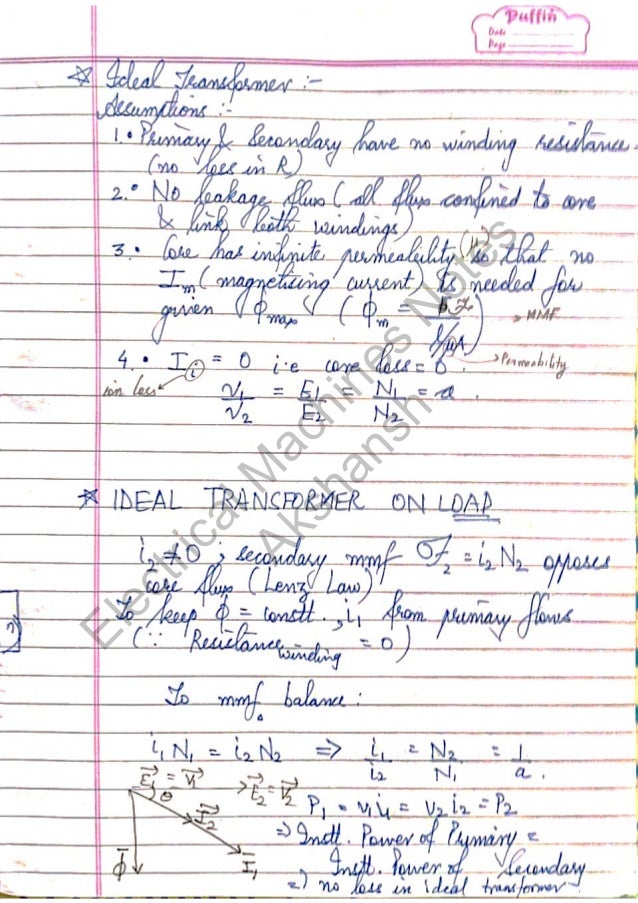 Puffin
Date
Page
☆ Ideal Transformer :-
Assumptions :-
1.• Primary & Secondary have no winding resistance.
(no loss in R)
2.• No leakage flux (all flux confined to core
& link both windings)
3.• Core has infinite permeability (μ) so that no
Im (magnetising current) is needed for
given Φmax (Φm = F / (l/μA)) → MMF
→ Permeability
4.• I i = 0 i.e core loss = 0
iron loss
V1/V2 = E1/E2 = N1/N2 = a.
☆ IDEAL TRANSFORMER ON LOAD
i2 ≠ 0, secondary mmf F2 = i2 N2 opposes
core flux (Lenz Law)
To keep Φ = constt., i1 from primary flows
(∵ Resistance winding = 0)
To mmf balance:
i1 N1 = i2 N2 ⇒ i1/i2 = N2/N1 = 1/a.
E1 = V1 → E2 = V2
θ I2
P1 = v1 i1 = v2 i2 = P2
⇒ Instt. Power of Primary =
Φ I1
Instt. Power of Secondary
⇒ no loss in ideal transformer.
Electrical Machines Notes
Akshansh